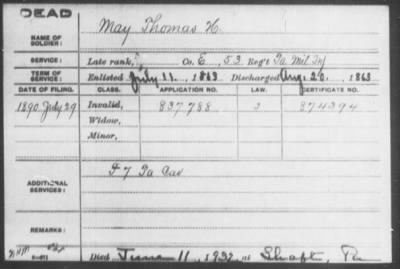 DEAD
NAME OF SOLDIER: May Thomas H.
SERVICE: Late rank, Co. E, 53 Reg't Pa Mil Inf
TERM OF SERVICE: Enlisted July 11, 1863 Discharged Aug. 20, 1863
DATE OF FILING. CLASS. APPLICATION NO. LAW. CERTIFICATE NO.
1890 July 29 Invalid, 837788 874394
Widow,
Minor,
ADDITIONAL SERVICES: F 7 Pa Cav
REMARKS:
Died 11, 1932, at Shaft, Pa